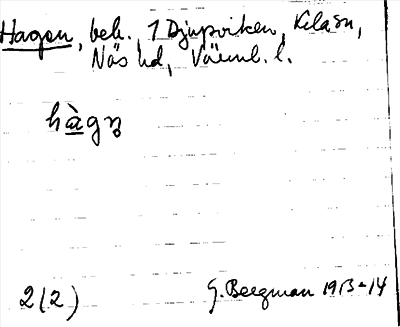 Hagen, beb., 1 Djupviken, Kila sn,
Näs hd, Värml. l.
hàgn̥
2(2)
G. Bergman 1913-14